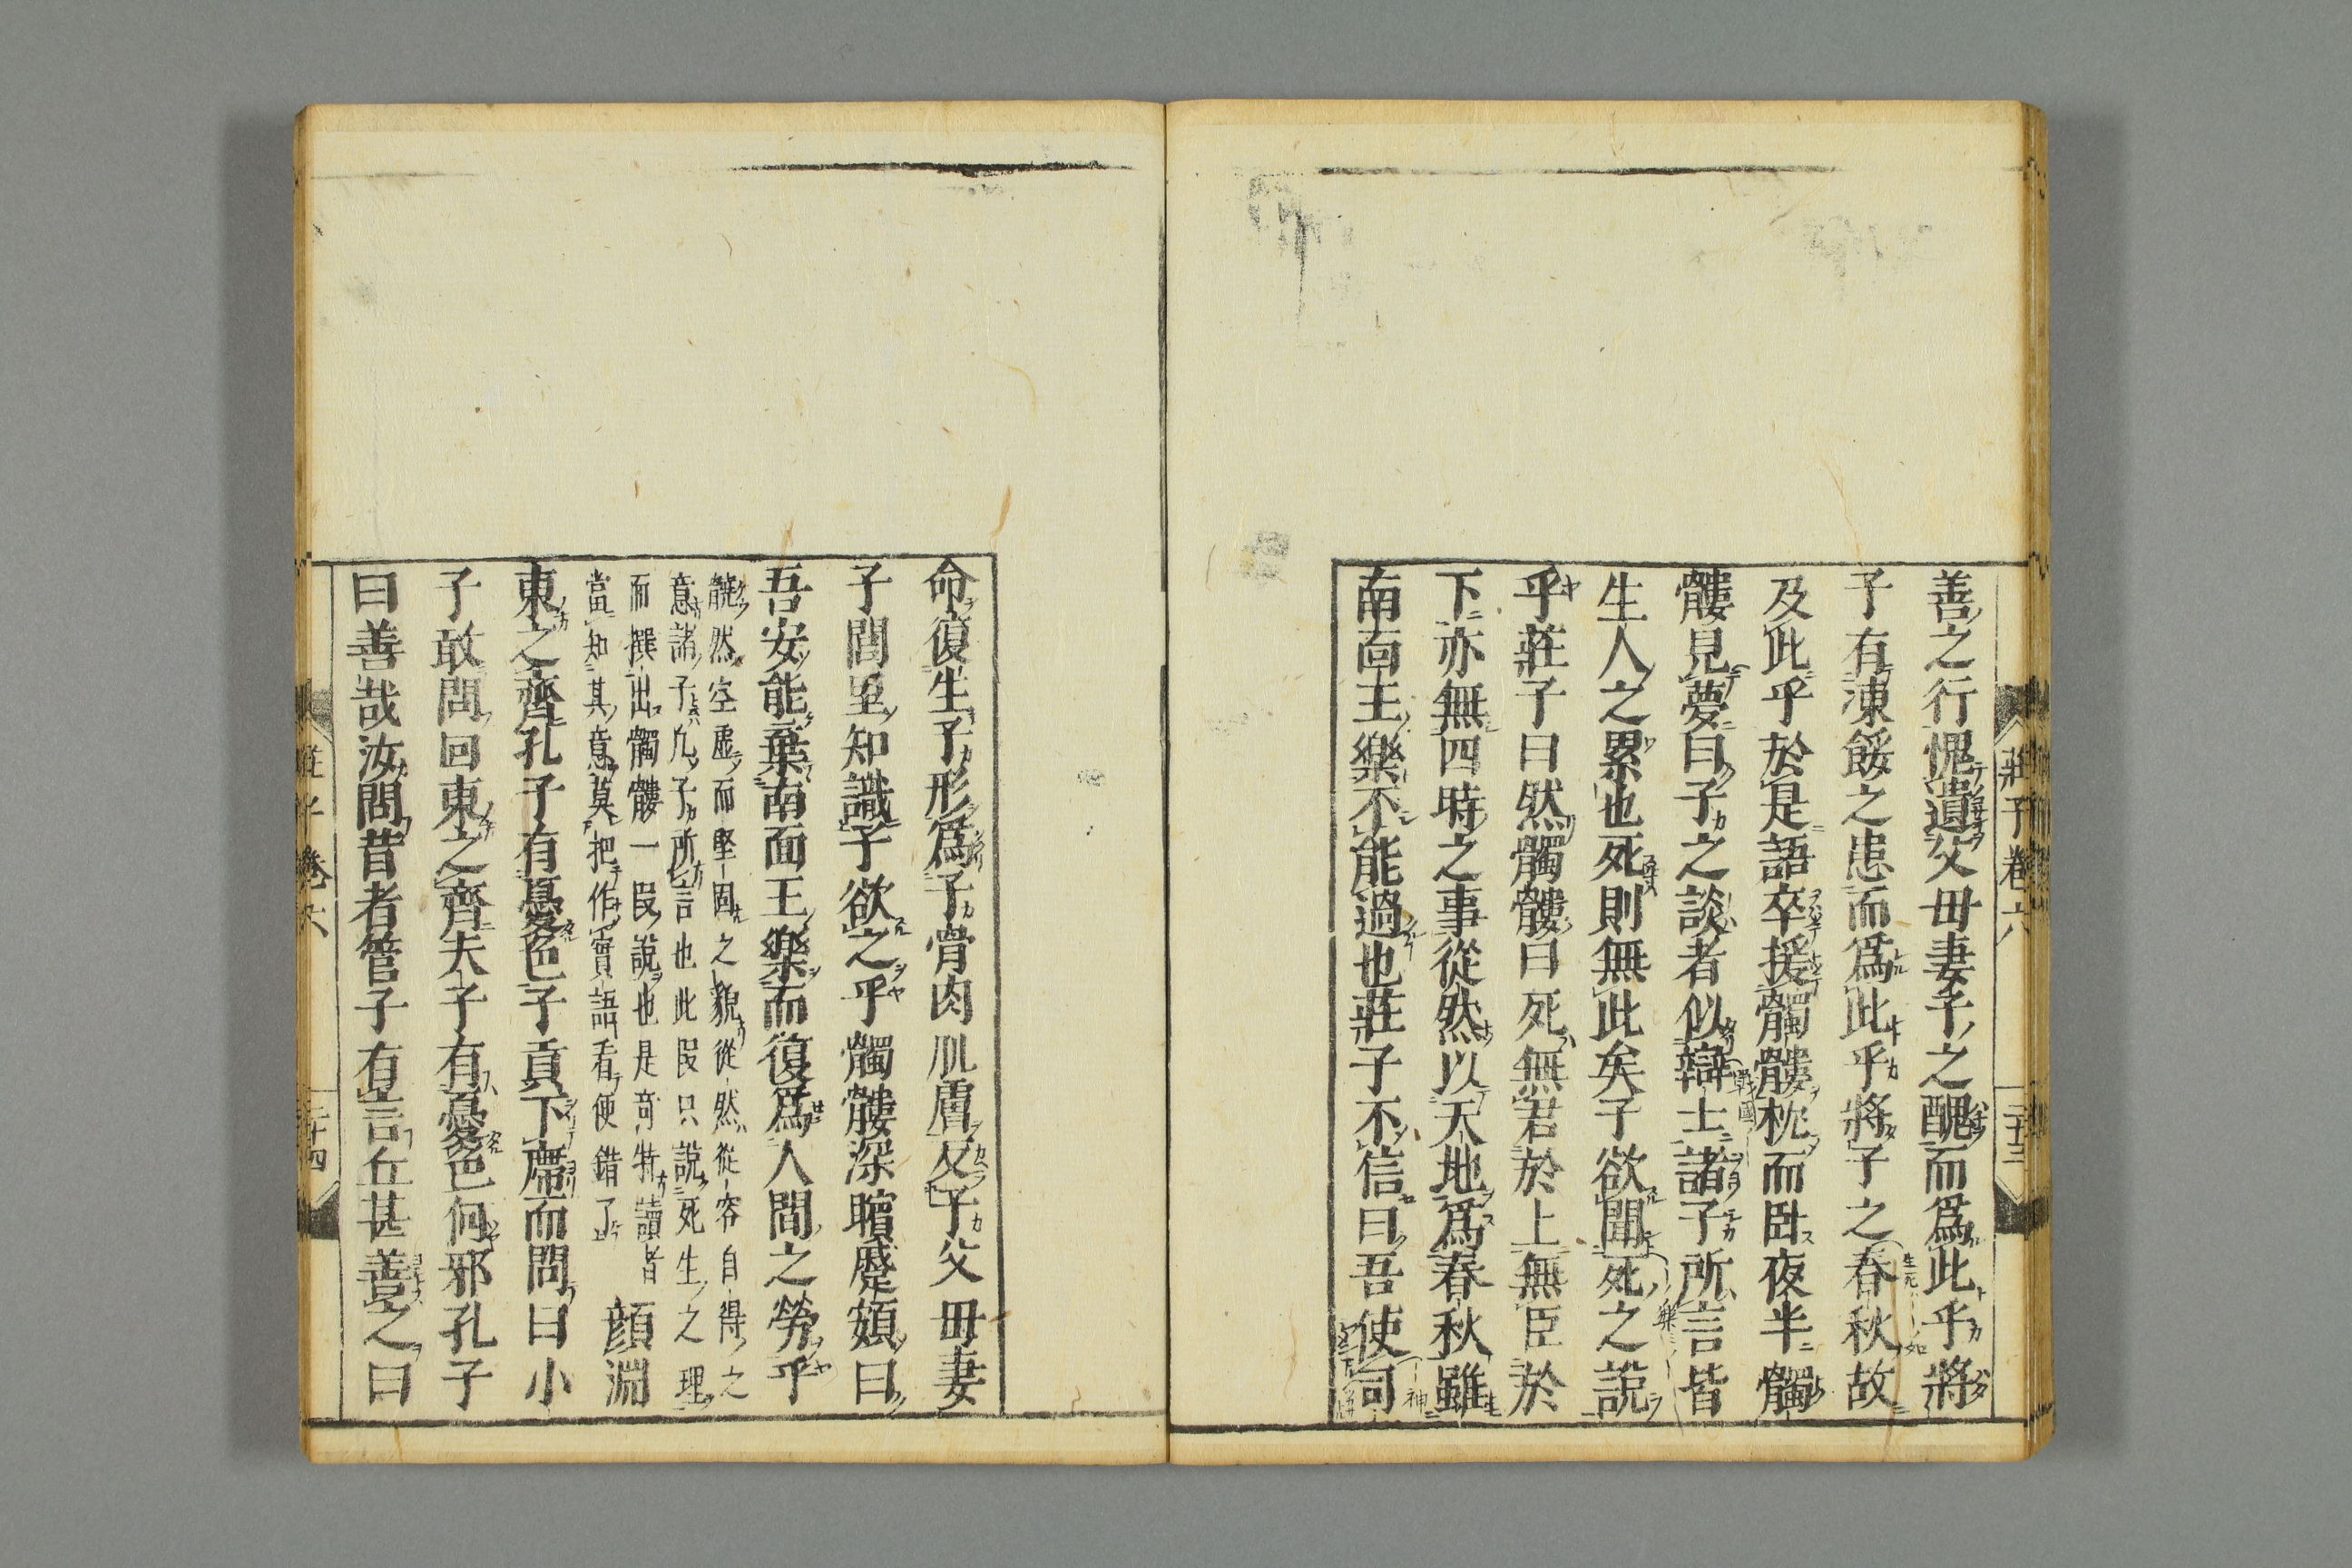 莊子卷六
二十三
善之行愧遺父母妻子之醜而爲此乎將
子有凍餒之患而爲此乎將子之春秋故
及此乎於是語卒援髑髏枕而臥夜半髑
髏見夢曰子之談者似辯士諸子所言皆
生人之累也死則無此矣子欲聞死之說
乎莊子曰然髑髏曰死無君於上無臣於
下亦無四時之事從然以天地爲春秋雖
南面王樂不能過也莊子不信曰吾使司
命復生子形爲子骨肉肌膚反子父母妻
子閭里知識子欲之乎髑髏深矉蹙頞曰
吾安能棄南面王樂而復爲人間之勞乎
髐然空虛而堅固之貌從然從容自得之
意諸子凡子所言也此段只說死生之理
而撰出髑髏一段說也是奇特讀者
當知其意莫把作實語看便錯了
顏淵
東之齊孔子有憂色子貢下席而問曰小
子敢問回東之齊夫子有憂色何邪孔子
曰善哉汝問昔者管子有言丘甚善之曰
莊子卷六
二十四